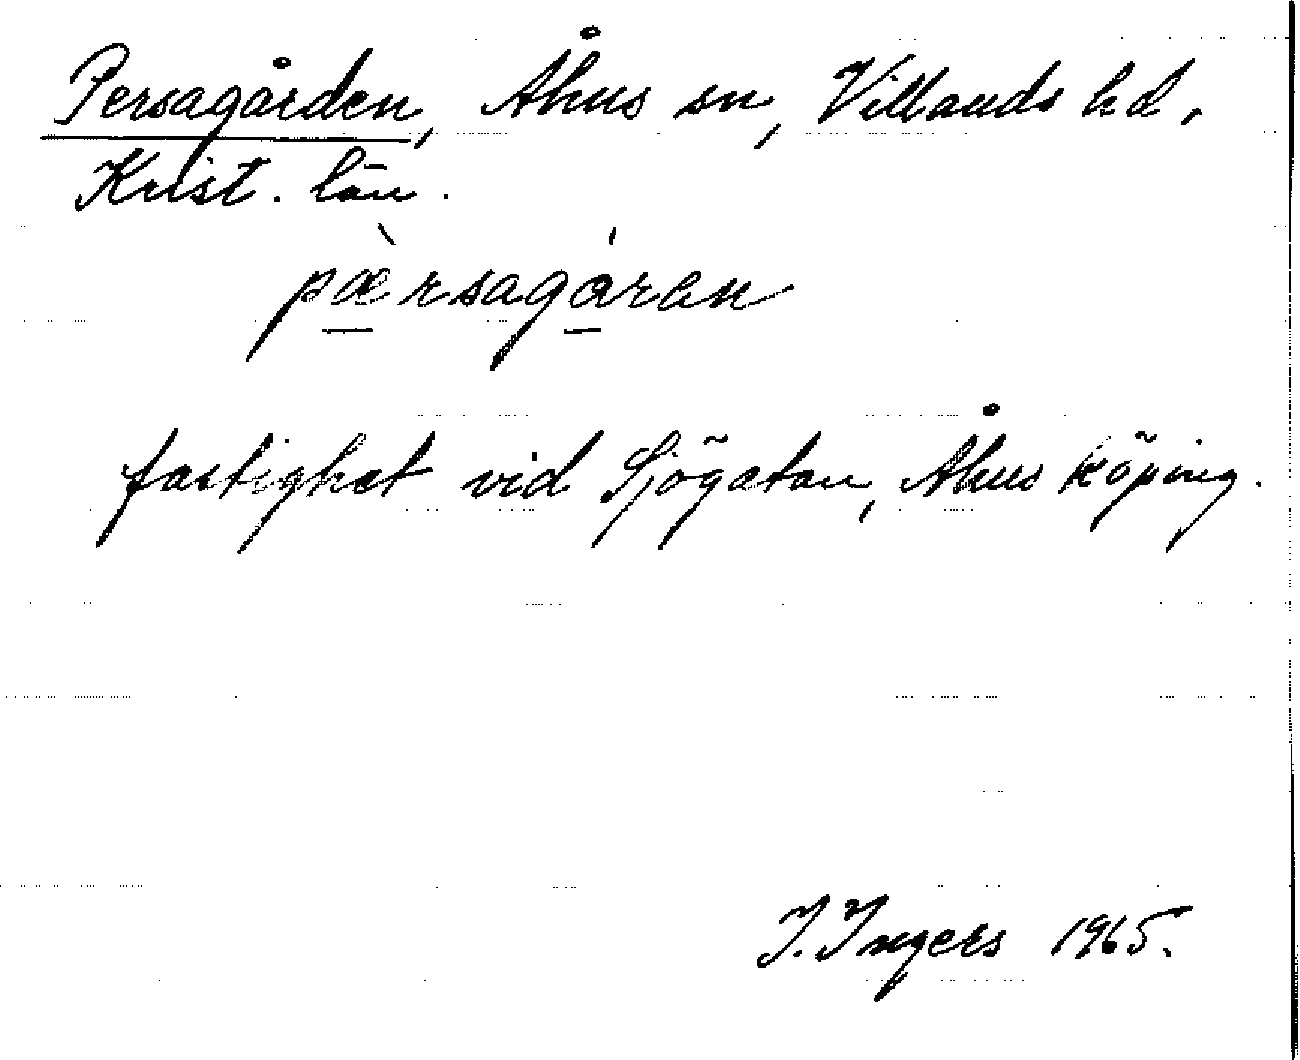 Persagården, Åhus sn, Villands hd,
Krist. län.
pæ̀rsagáren
fastighet vid Sjögatan, Åhus köping.
I. Ingers 1965.